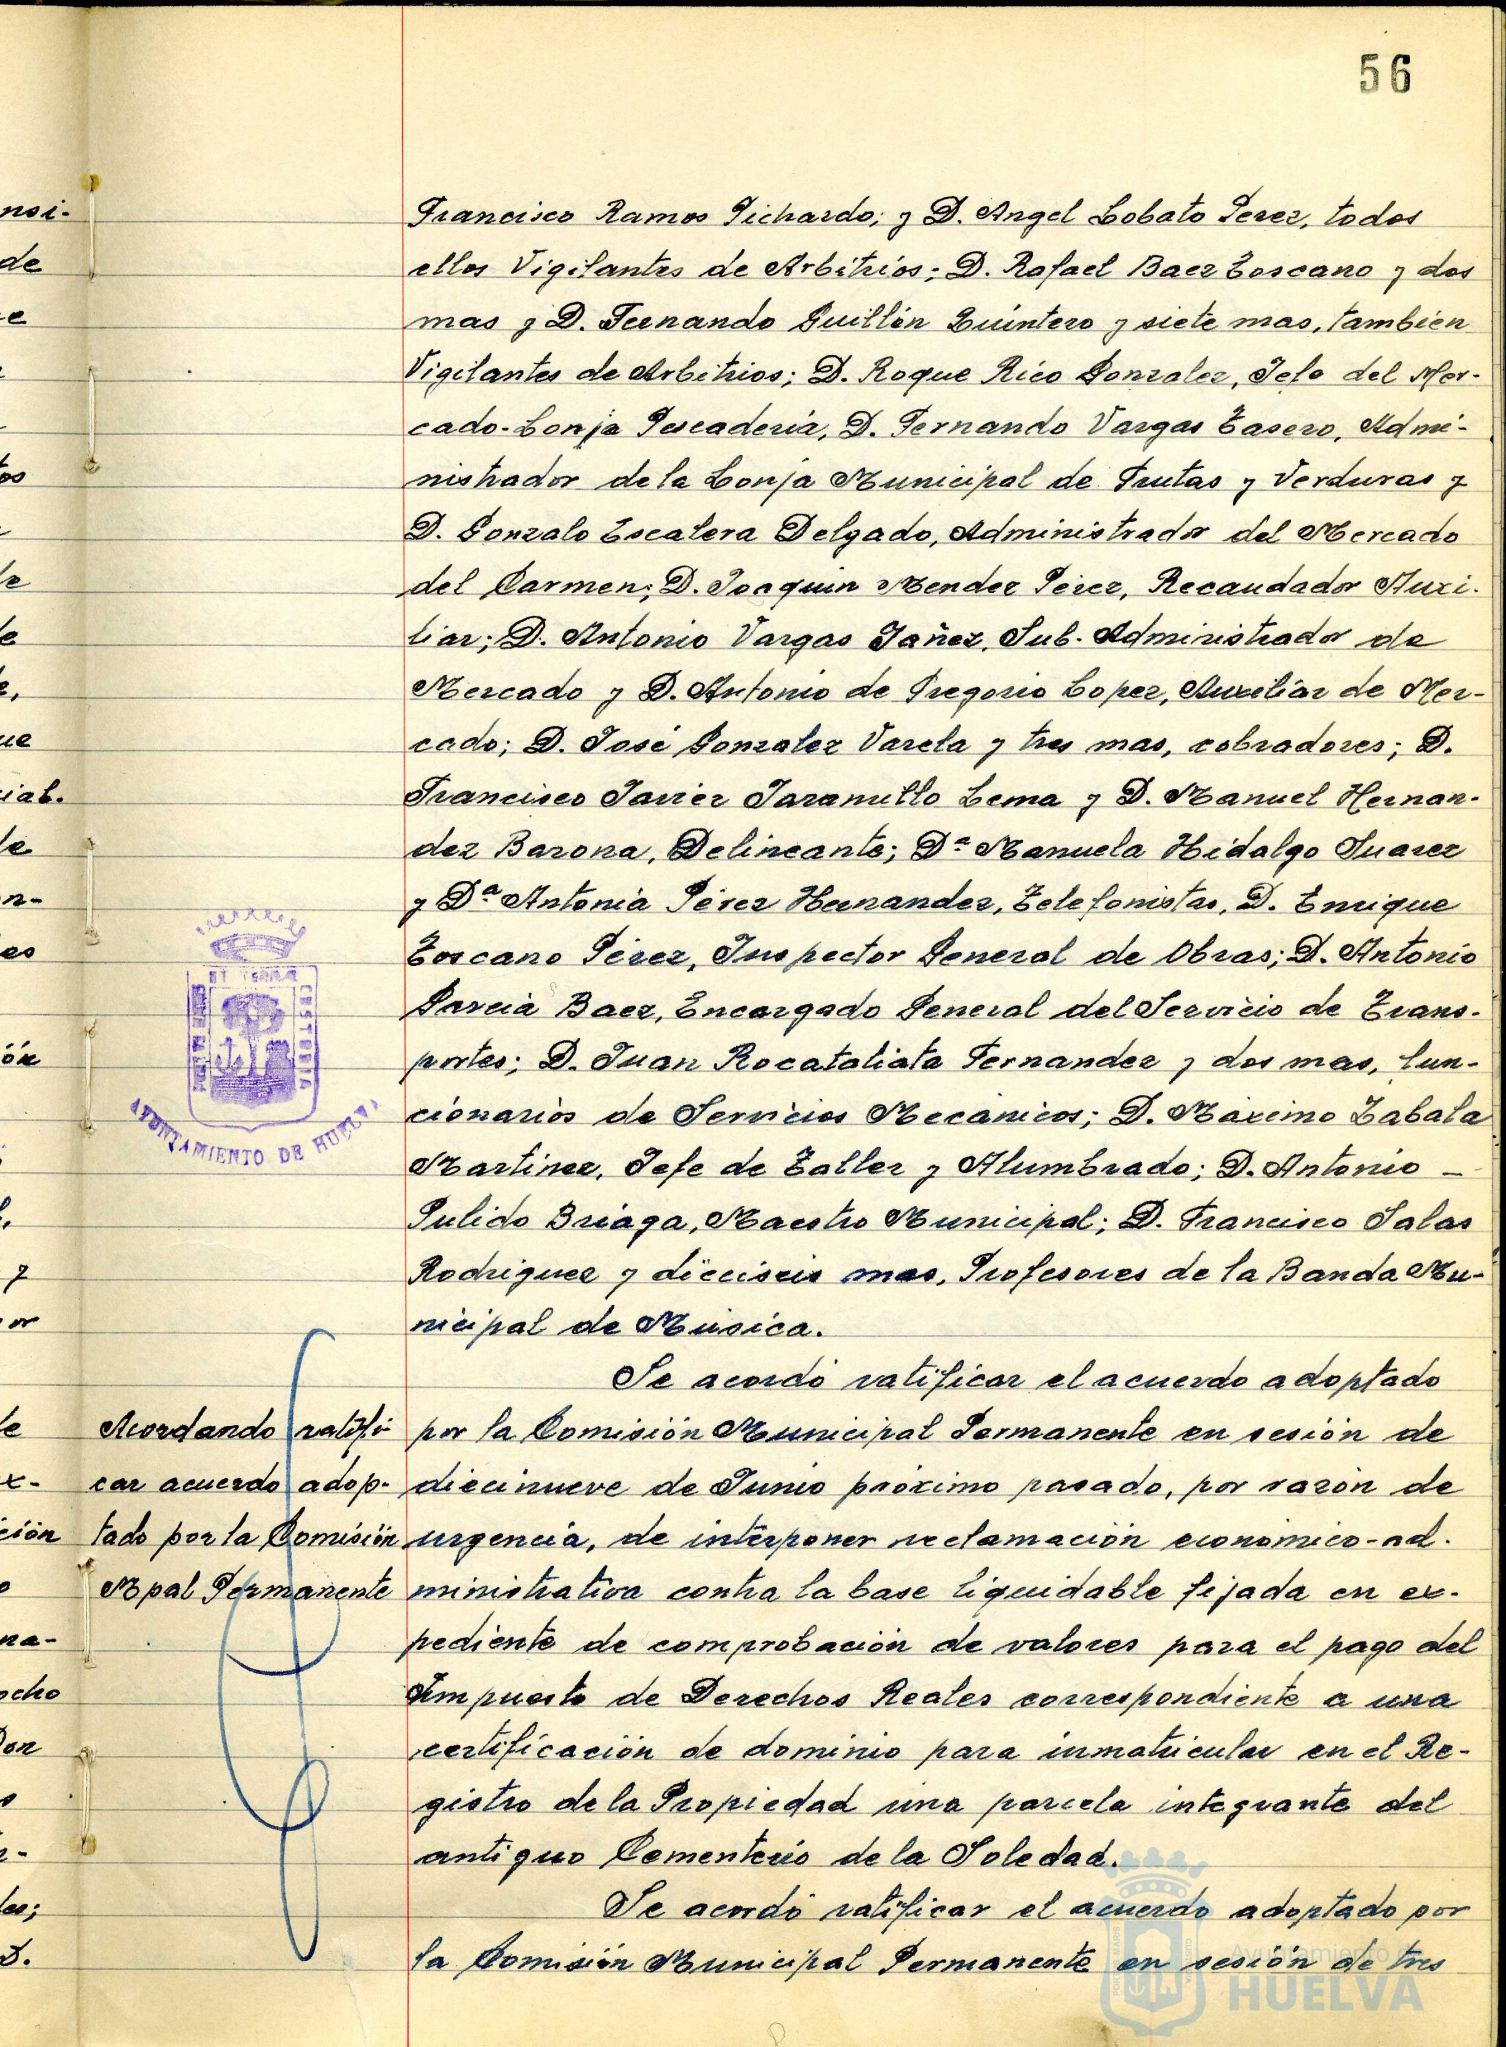 56
Francisco Ramos Pichardo; y D. Angel Lobato Perez, todos
ellos Vigilantes de Arbitrios; D. Rafael Baez Toscano y dos
mas y D. Fernando Guillén Quintero y siete mas, tambien
Vigilantes de Arbitrios; D. Roque Rico Gonzalez, Jefe del Mer-
cado-Lonja Pescaderia, D. Fernando Vargas Tasero, Admi-
nistrador de la Lonja Municipal de Frutas y Verduras y
D. Gonzalo Escalera Delgado, Administrador del Mercado
del Carmen; D. Joaquin Mendez Pérez, Recaudador Auxi-
liar; D. Antonio Vargas Yañez, Sub-Administrador de
Mercado y D. Antonio de Gregorio Lopez, Auxiliar de Mer-
cado; D. José Gonzalez Varela y tres mas, cobradores; D.
Francisco Javier Jaramillo Lema y D. Manuel Hernan-
dez Barona, Delineante; Dª Manuela Hidalgo Suarez
y Dª Antonia Pérez Hernandez, Telefonistas, D. Enrique
Toscano Pérez, Inspector General de Obras; D. Antonio
Garcia Baez, Encargado General del Servicio de Trans-
portes; D. Juan Rocataliata Fernandez y dos mas, fun-
cionarios de Servicios Mecánicos; D. Máximo Zabala
Martinez, Jefe de Taller y Alumbrado; D. Antonio -
Pulido Briaga, Maestro Municipal; D. Francisco Salas
Rodriguez y dieciseis mas, Profesores de la Banda Mu-
nicipal de Música.
Se acordó ratificar el acuerdo adoptado
por la Comisión Municipal Permanente en sesión de
diecinueve de Junio próximo pasado, por razón de
urgencia, de interponer reclamación económico-ad-
ministrativa contra la base liquidable fijada en ex-
pediente de comprobación de valores para el pago del
Impuesto de Derechos Reales correspondiente a una
certificación de dominio para inmatricular en el Re-
gistro de la Propiedad una parcela integrante del
antiguo Cementerio de la Soledad.
Se acordó ratificar el acuerdo adoptado por
la Comisión Municipal Permanente en sesión de tres
Acordando ratifi
car acuerdo adop-
tado por la Comisión
Mpal Permanente
AYUNTAMIENTO DE HUELVA
nsi-
de
e
tos
le
le
e,
ue
ial.
le
n-
es
ón
y
or
le
x-
ción
o
na-
ocho
Don
r-
les;
D.
Ayuntamiento de
HUELVA